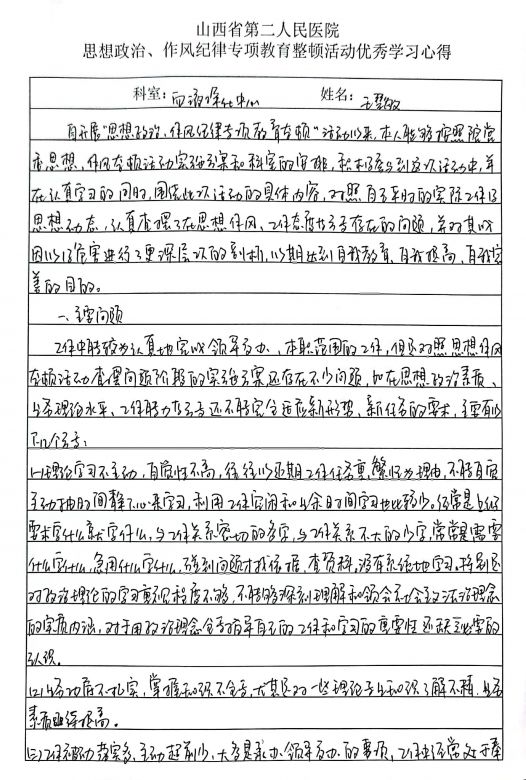 山西省第二人民医院
思想政治、作风纪律专项教育整顿活动优秀学习心得
科室：血液净化中心 姓名：王
自开展"思想政治、作风纪律专项教育整顿"活动以来，本人能够按照院党
委思想、作风整顿活动实施方案和科室的安排，积极参与到这次活动中，并
在认真学习的同时，围绕此次活动的具体内容，对照自己平时的实际工作及
思想动态，认真查摆了在思想作风、工作态度等方面存在的问题，并对其成
因以及危害进行了更深层次的剖析，以期达到自我教育、自我提高、自我完
善的目的。
一、主要问题
工作中能较为认真地完成领导交办、本职范围的工作，但还对照思想作风
整顿活动查摆问题阶段的实施方案还存在不少问题，如在思想政治素质、
业务理论水平、工作能力等方面还不能完全适应新形势、新任务的要求，主要有以
下几个方面：
(1)理论学习不主动，自觉性不高，往往以近期工作任务重、繁忙为理由，不能自觉
主动抽时间静下心来学习，利用工作空闲和业余时间学习也比较少。经常是上级
要求学什么就学什么，与工作关系密切的多学，与工作关系不大的少学，常常是需要
什么学什么，急用什么学什么，碰到问题才找依据、查资料，没有系统地学习。特别还
对政治理论的学习重视程度不够，不能够深刻理解和领会不少全文法治理念
的实质内涵，对于用政治理念全面指导自己的工作和学习的重要性还缺乏必要的
认识。
(2)业务功底不扎实，掌握知识不全面，尤其还对一些理论专业知识了解不精，业务
素质亟待提高。
(3)工作被动落实多，主动超前少，大多是承办领导交办的事项，工作中经常处于奉